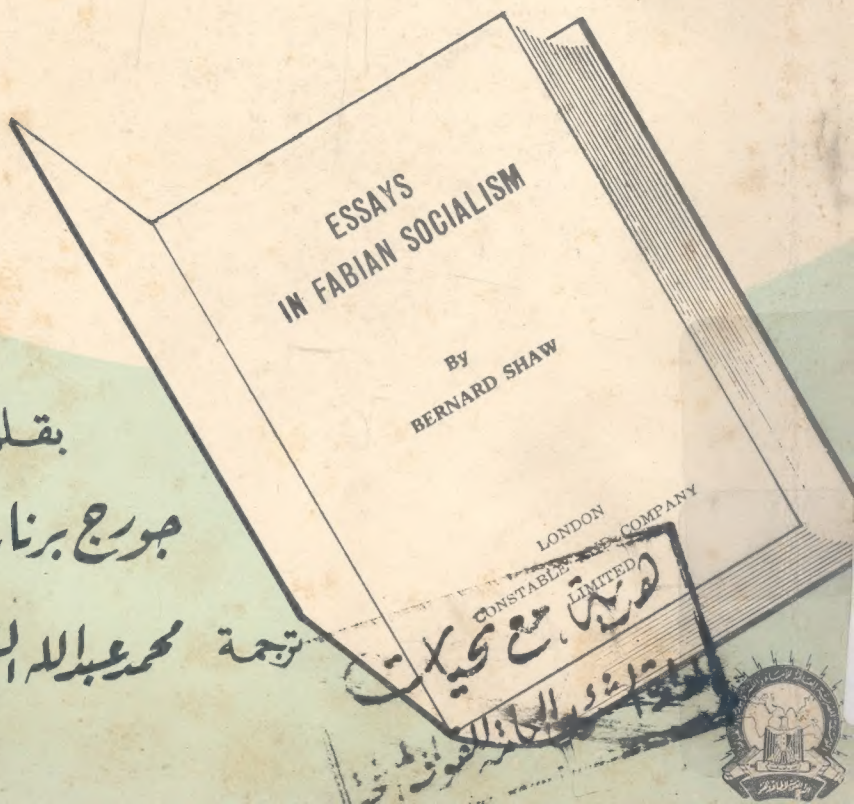 ESSAYS
IN FABIAN SOCIALISM
By
BERNARD SHAW
LONDON
CONSTABLE COMPANY
LIMITED
جورج
ترجمة محمد عبدالله
هدية مع تحيات